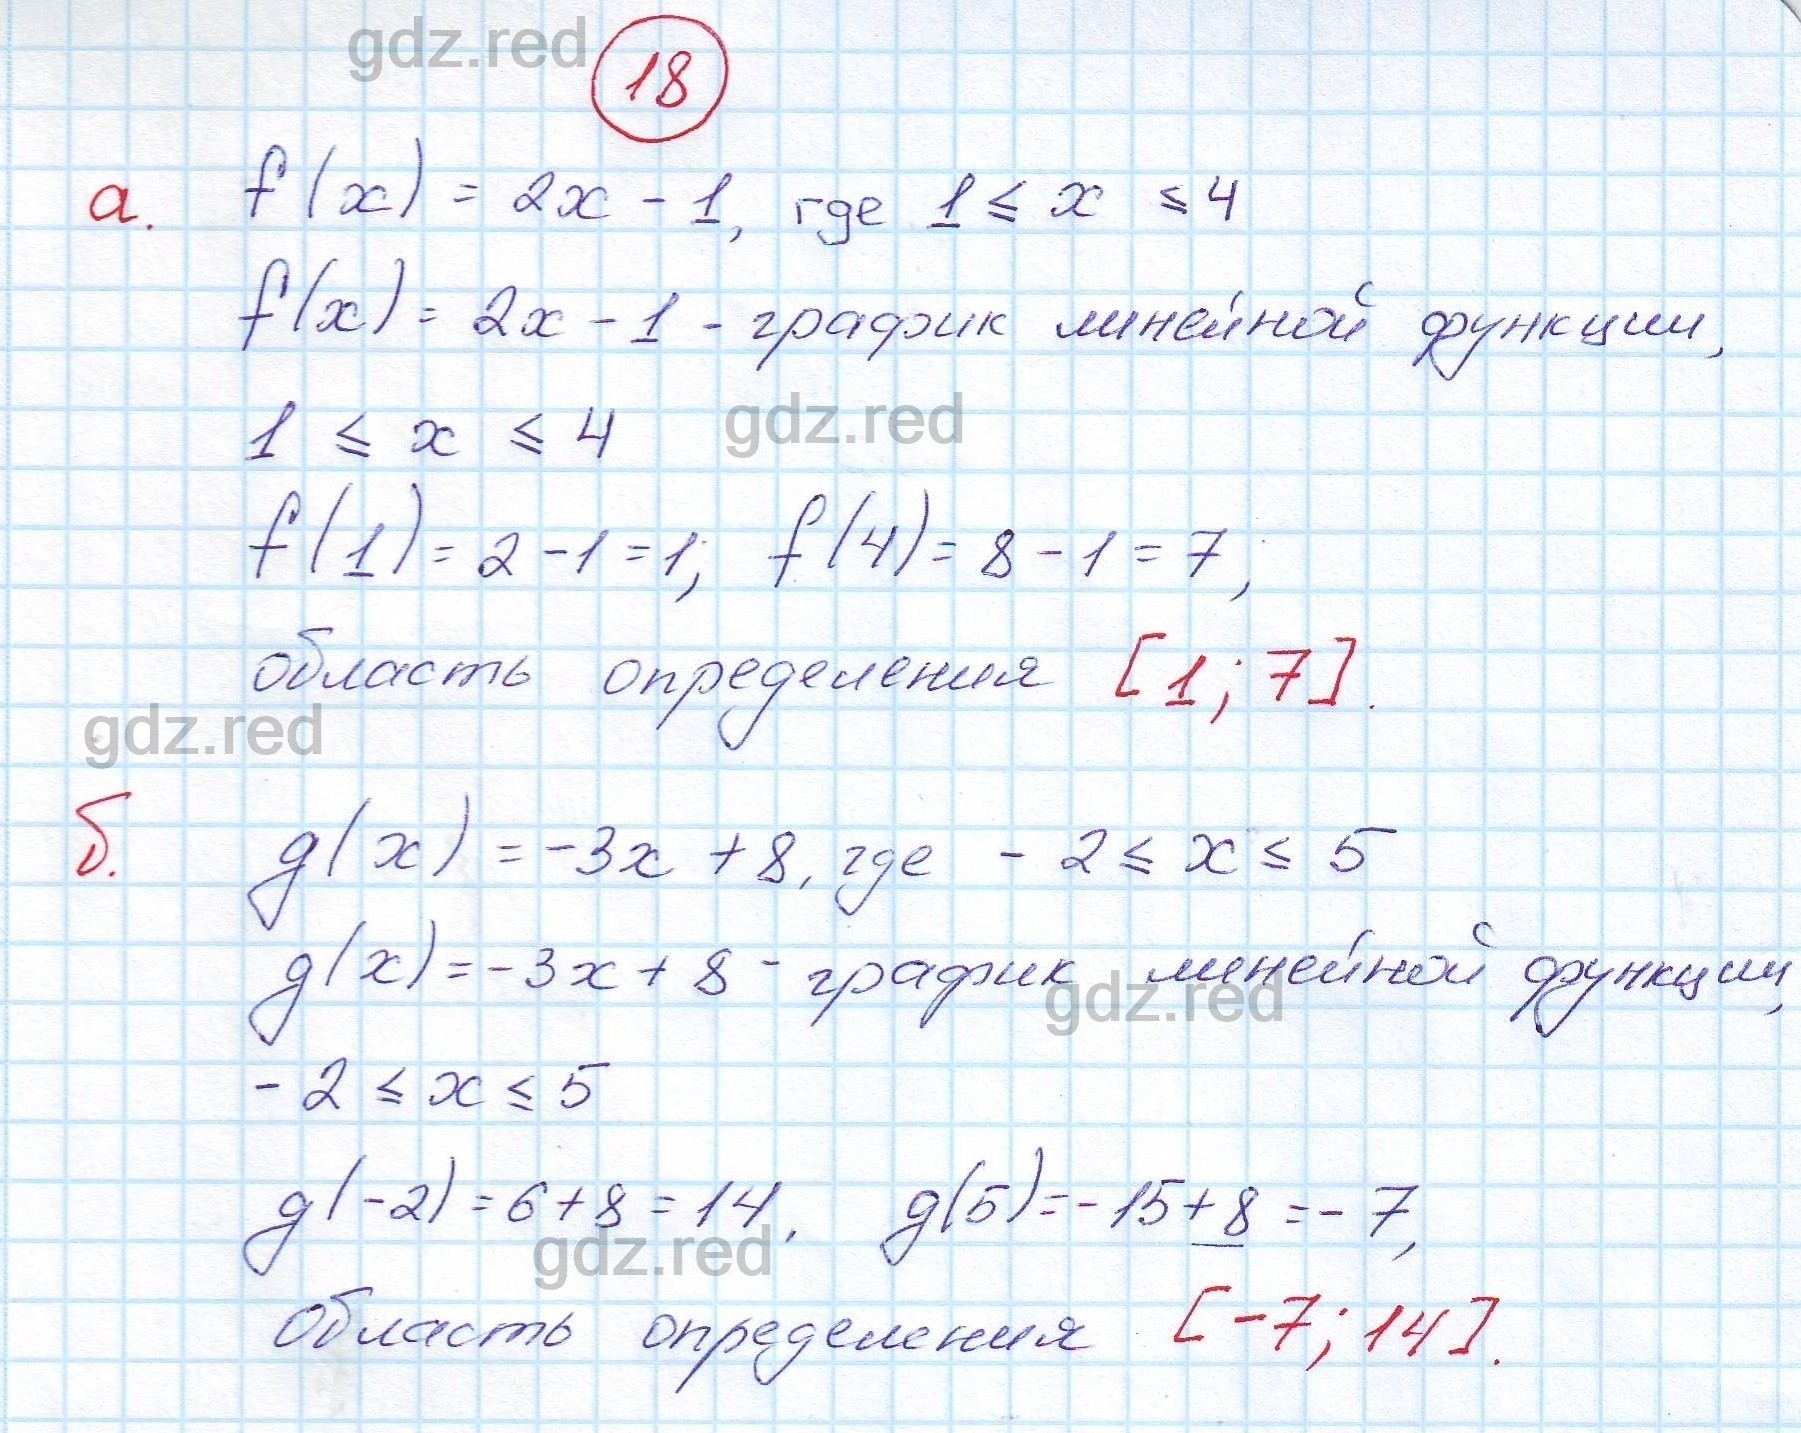 gdz.red
18
а. f(x) = 2x - 1, где 1 ≤ x ≤ 4
f(x) = 2x - 1 - график линейной функции,
1 ≤ x ≤ 4
gdz.red
f(1) = 2 - 1 = 1; f(4) = 8 - 1 = 7,
область определения [1; 7].
gdz.red
б. g(x) = -3x + 8, где -2 ≤ x ≤ 5
g(x) = -3x + 8 - график линейной функции,
gdz.red
-2 ≤ x ≤ 5
g(-2) = 6 + 8 = 14, g(5) = -15 + 8 = -7,
gdz.red
область определения [-7; 14].